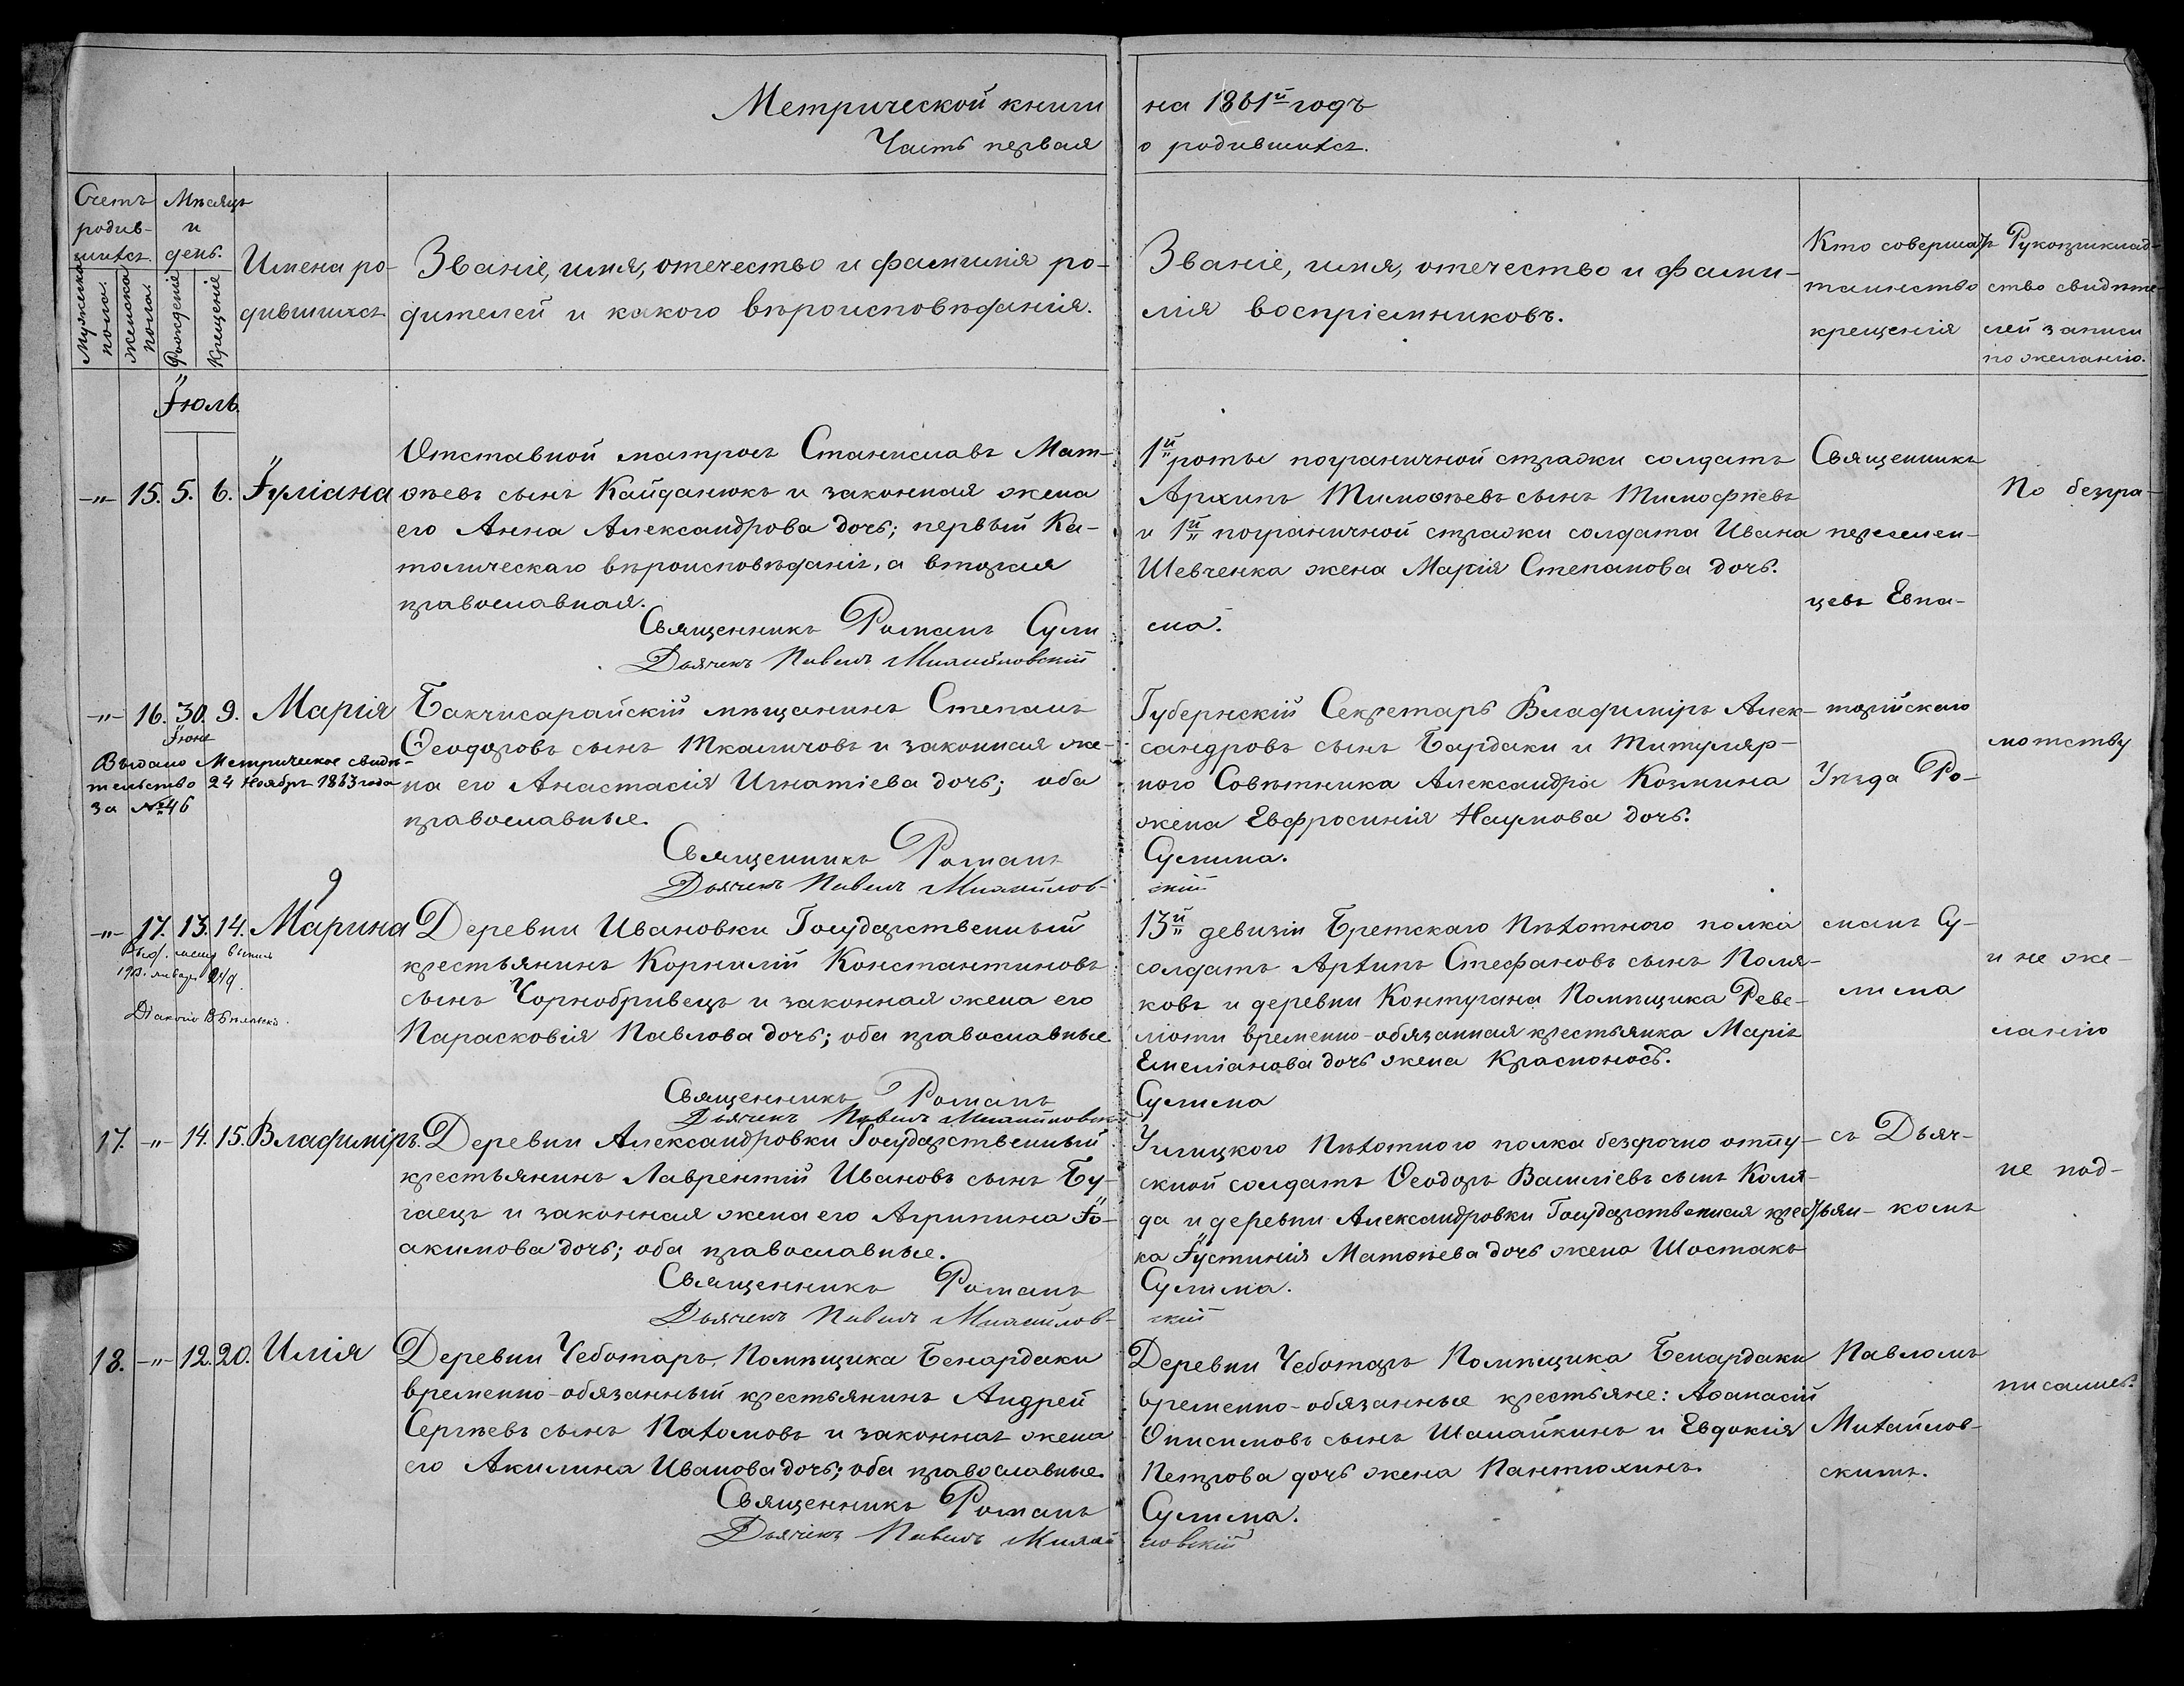 Метрической книги на 1861й годъ
Часть первая о родившихся.
Счетъ родив-шихся.
Мужеска пола.
Женска пола.
Мѣсяцъ и день.
Рожденіе
Крещеніе
Имена ро-
дившихся
Званіе, имя, отечество и фамилія ро-
дителей и какого вѣроисповѣданія.
Званіе, имя, отечество и фами-
лія воспріемниковъ.
Кто совершалъ
таинство
крещенія
Рукоприклад-
ство свидѣте-
лей записи
по желанію.
Іюль.
-"- 15. 5. 6. Іуліана
Отставной матросъ Станиславъ Мат-
ѳѣевъ сынъ Кайданюкъ и законная жена
его Анна Александрова дочь; первый Ка-
толическаго вѣроисповѣданія, а вторая
православная.
Священникъ Романъ Сули
Дьячекъ Павелъ Михайловскій
1й роты пограничной стражи солдатъ
Архипъ Тимоѳѣевъ сынъ Тимофѣевъ
и 1й пограничной стражи солдата Ивана
Шевченка жена Марія Степанова дочь.
сма.
-"- 16. 30. 9. Марія
Іюня
Выдано Метрическое свидѣ-
тельство 24 Ноября 1863 года
за № 46
Бакчисарайскій мѣщанинъ Степанъ
Ѳеодоровъ сынъ Ткаличовъ и законная же-
на его Анастасія Игнатіева дочь; оба
православные.
Священникъ Романъ
Дьячекъ Павелъ Михайлов-
Губернскій Секретарь Владиміръ Алек-
сандровъ сынъ Бардаки и Титуляр-
ного Совѣтника Александра Козмина
жена Евфросинія Наумова дочь.
Сулима.
скій
9
-"- 17. 13. 14. Марина
Деревни Ивановки Государственный
крестьянинъ Корнилій Константиновъ
сынъ Чорнобривецъ и законная жена его
Парасковія Павлова дочь; оба православные
Священникъ Романъ
Дьячекъ Павелъ Михайловскій
13й девизіи Бретскаго Пѣхотного полка
солдатъ Архипъ Стефановъ сынъ Поля-
ковъ и деревни Контугана Помѣщика Реве-
ліоти временно-обязанная крестьянка Марія
Емеліанова дочь жена Красноносъ.
Сулима
17. -"- 14. 15. Владиміръ.
Деревни Александровки Государственный
крестьянинъ Лаврентій Ивановъ сынъ Бу-
гаецъ и законная жена его Агрипина Іо-
акимова дочь; оба православные.
Священникъ Романъ
Дьячекъ Павелъ Михайлов-
Углицкого Пѣхотного полка безсрочно отпу-
скной солдатъ Ѳеодоръ Василіевъ сынъ Коля-
да и деревни Александровки Государственная крестьян-
ка Іустинія Матѳѣева дочь жена Шостакъ
Сулима.
скій
18. -"- 12. 20. Илія
Деревни Чеботаръ, Помѣщика Бенардаки
временно-обязанный крестьянинъ Андрей
Сергѣевъ сынъ Пахомовъ и законная жена
его Акилина Иванова дочь; оба православные.
Священникъ Романъ
Дьячекъ Павелъ Михай
Деревни Чеботаръ Помѣщика Бенардаки
временно-обязанные крестьяне: Аѳанасій
Онисимовъ сынъ Шамайкинъ и Евдокія
Петрова дочь жена Пантюхинъ.
Сулима.
ловскій
Священникъ
перемен-
цевъ Евпа-
торійскаго
Уѣзда Ро-
манъ Су-
лима
съ Дьяч-
комъ
Павломъ
Михайлов-
скимъ.
По безгра-
мотству
и не же-
ланію
не под-
писались.